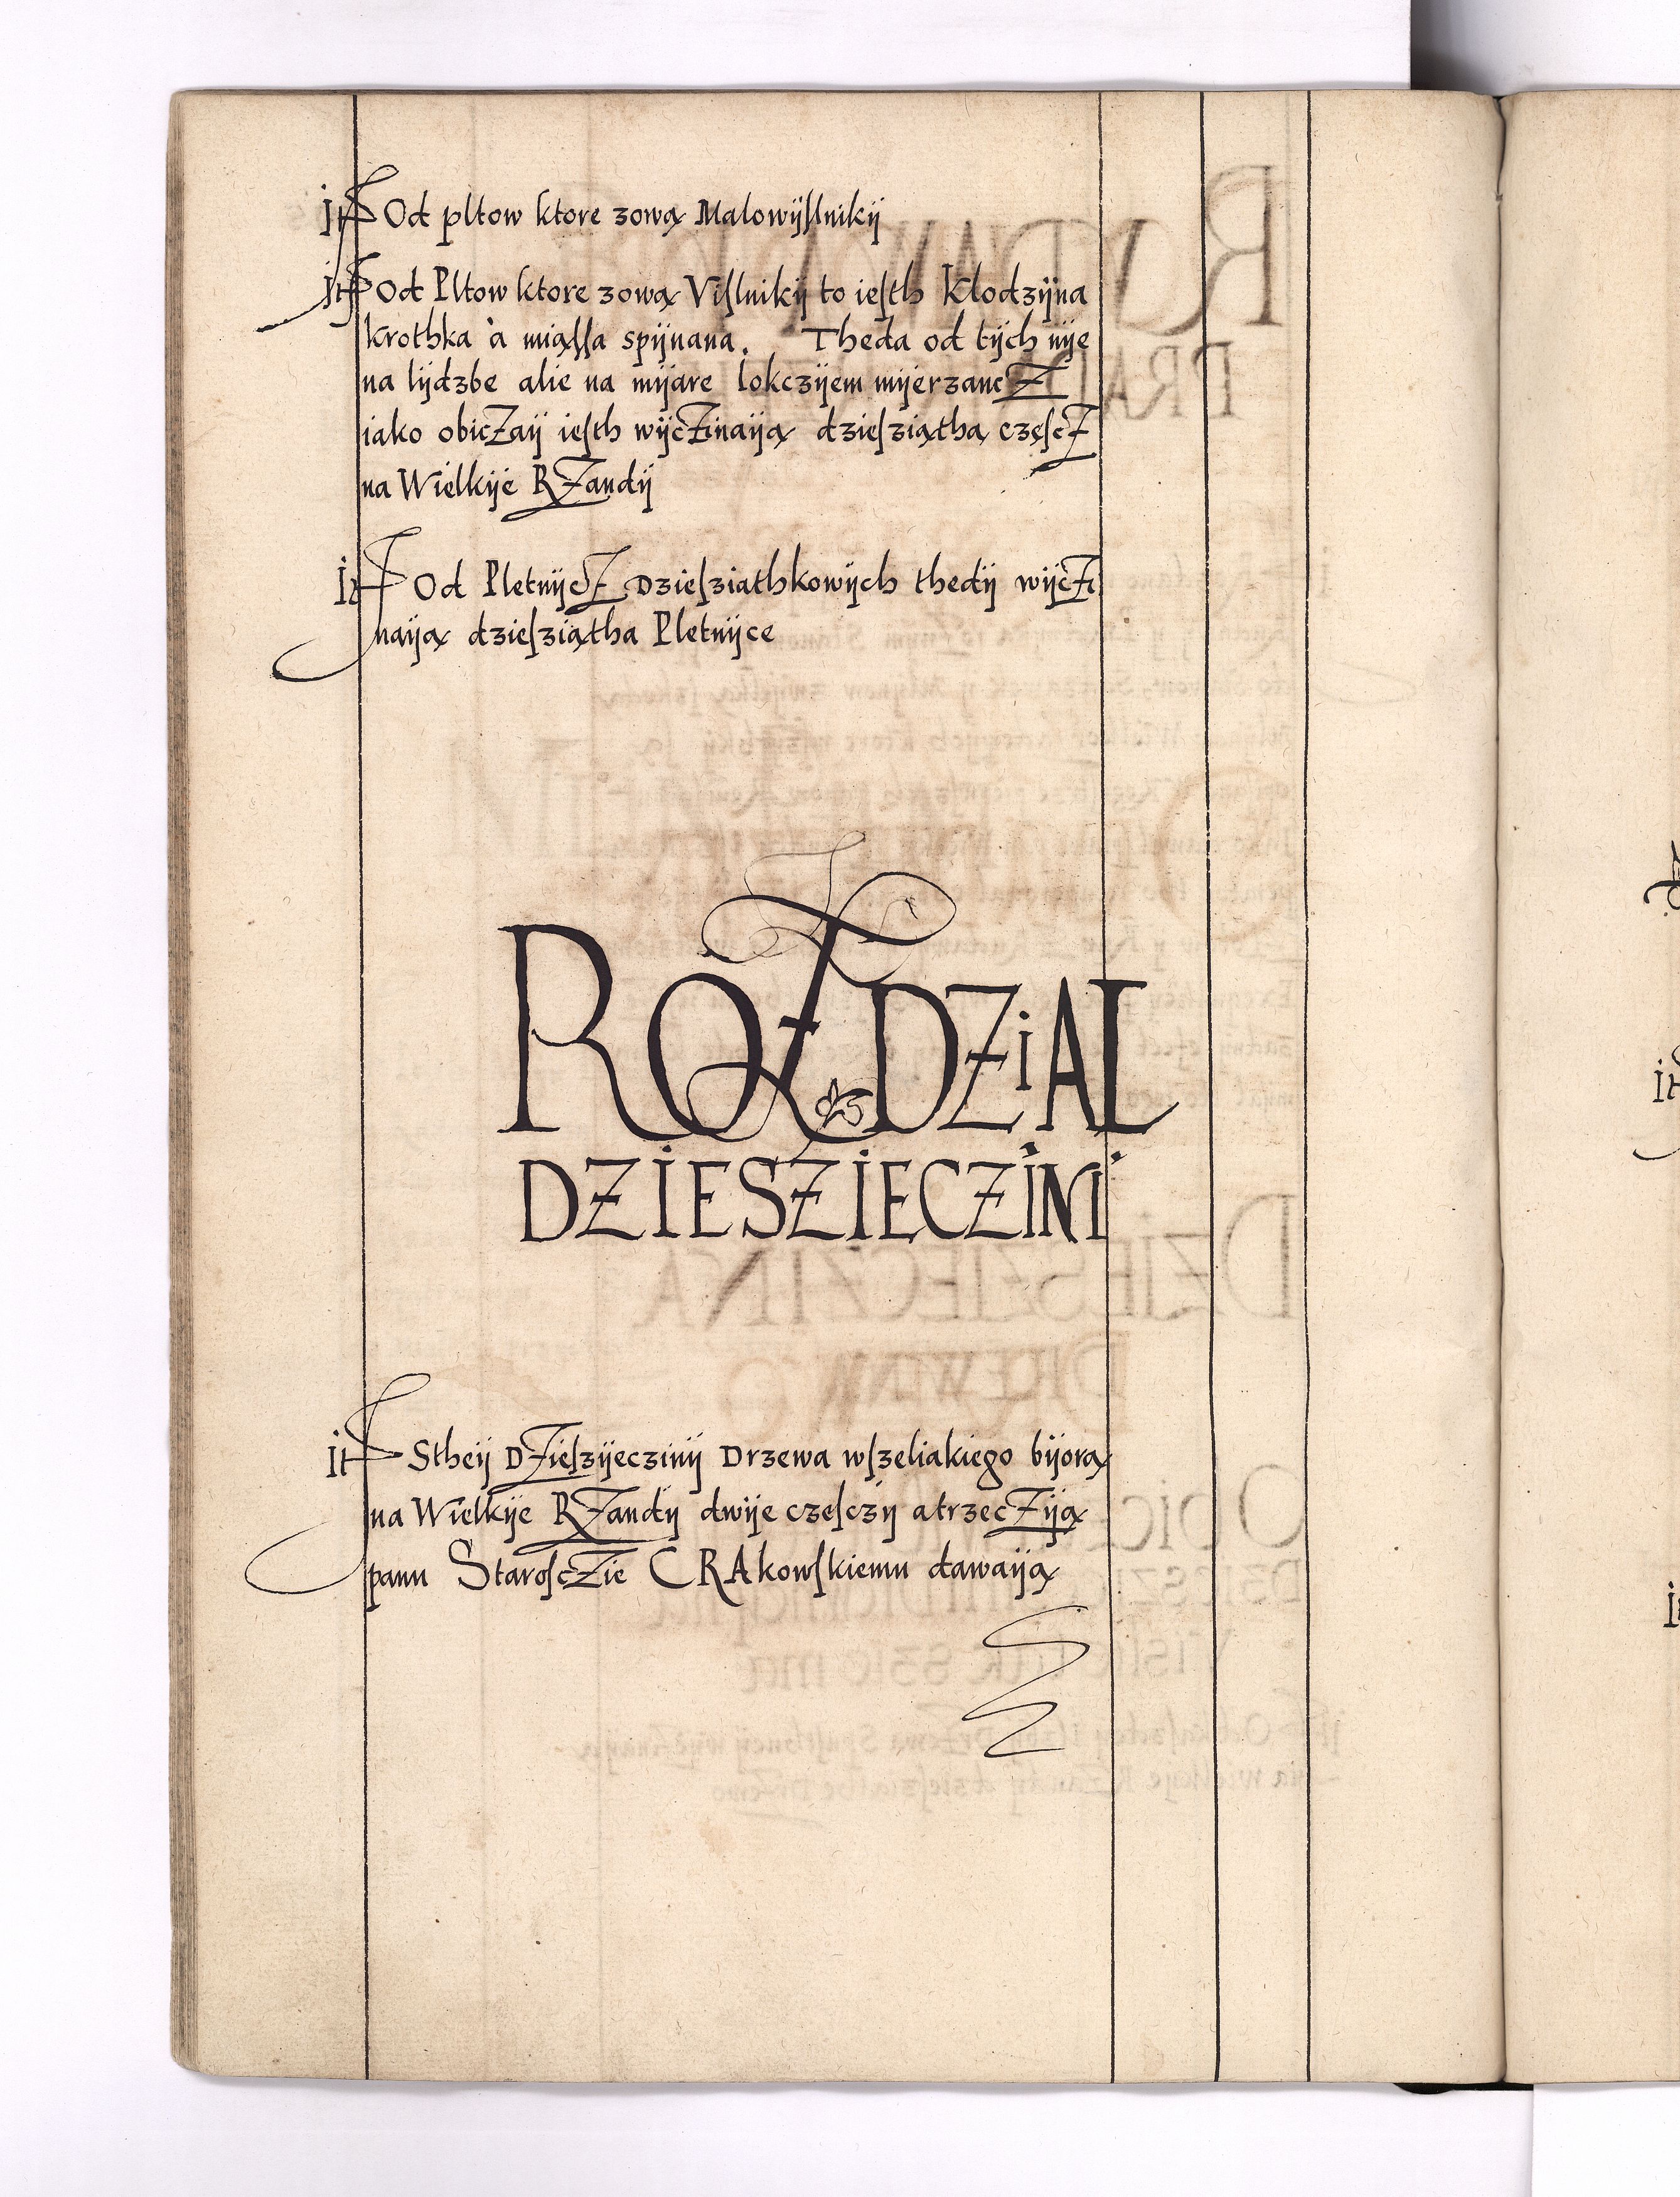 It Od pltow ktore zową Malowÿſlnikÿ
It Od Pltow ktore zową Viſlnikÿ to ieſth Klodzÿna
krothka à miąſſa spÿnana. Theda od tÿch nÿe
na lÿdzbe alie na mÿare lokczÿem mÿerzancZ
iako obicZaÿ ieſth wÿcZinaÿą dzieſziątha częſcZ
na Wielkÿe RZandÿ
It Od PletnÿcZ Dzieſziathkowÿch thedÿ wÿcZi
naÿą dzieſziątha Pletnÿce
ROZDZiAL
DZIESZIECZINI
It Stheÿ DZieſzÿeczinÿ Drzewa wſzeliakiego bÿorą
na Wielkÿe RZandÿ dwÿe czeſczÿ atrzecZÿą
panu StaroſcZie CRAkowſkiemu dawaÿą